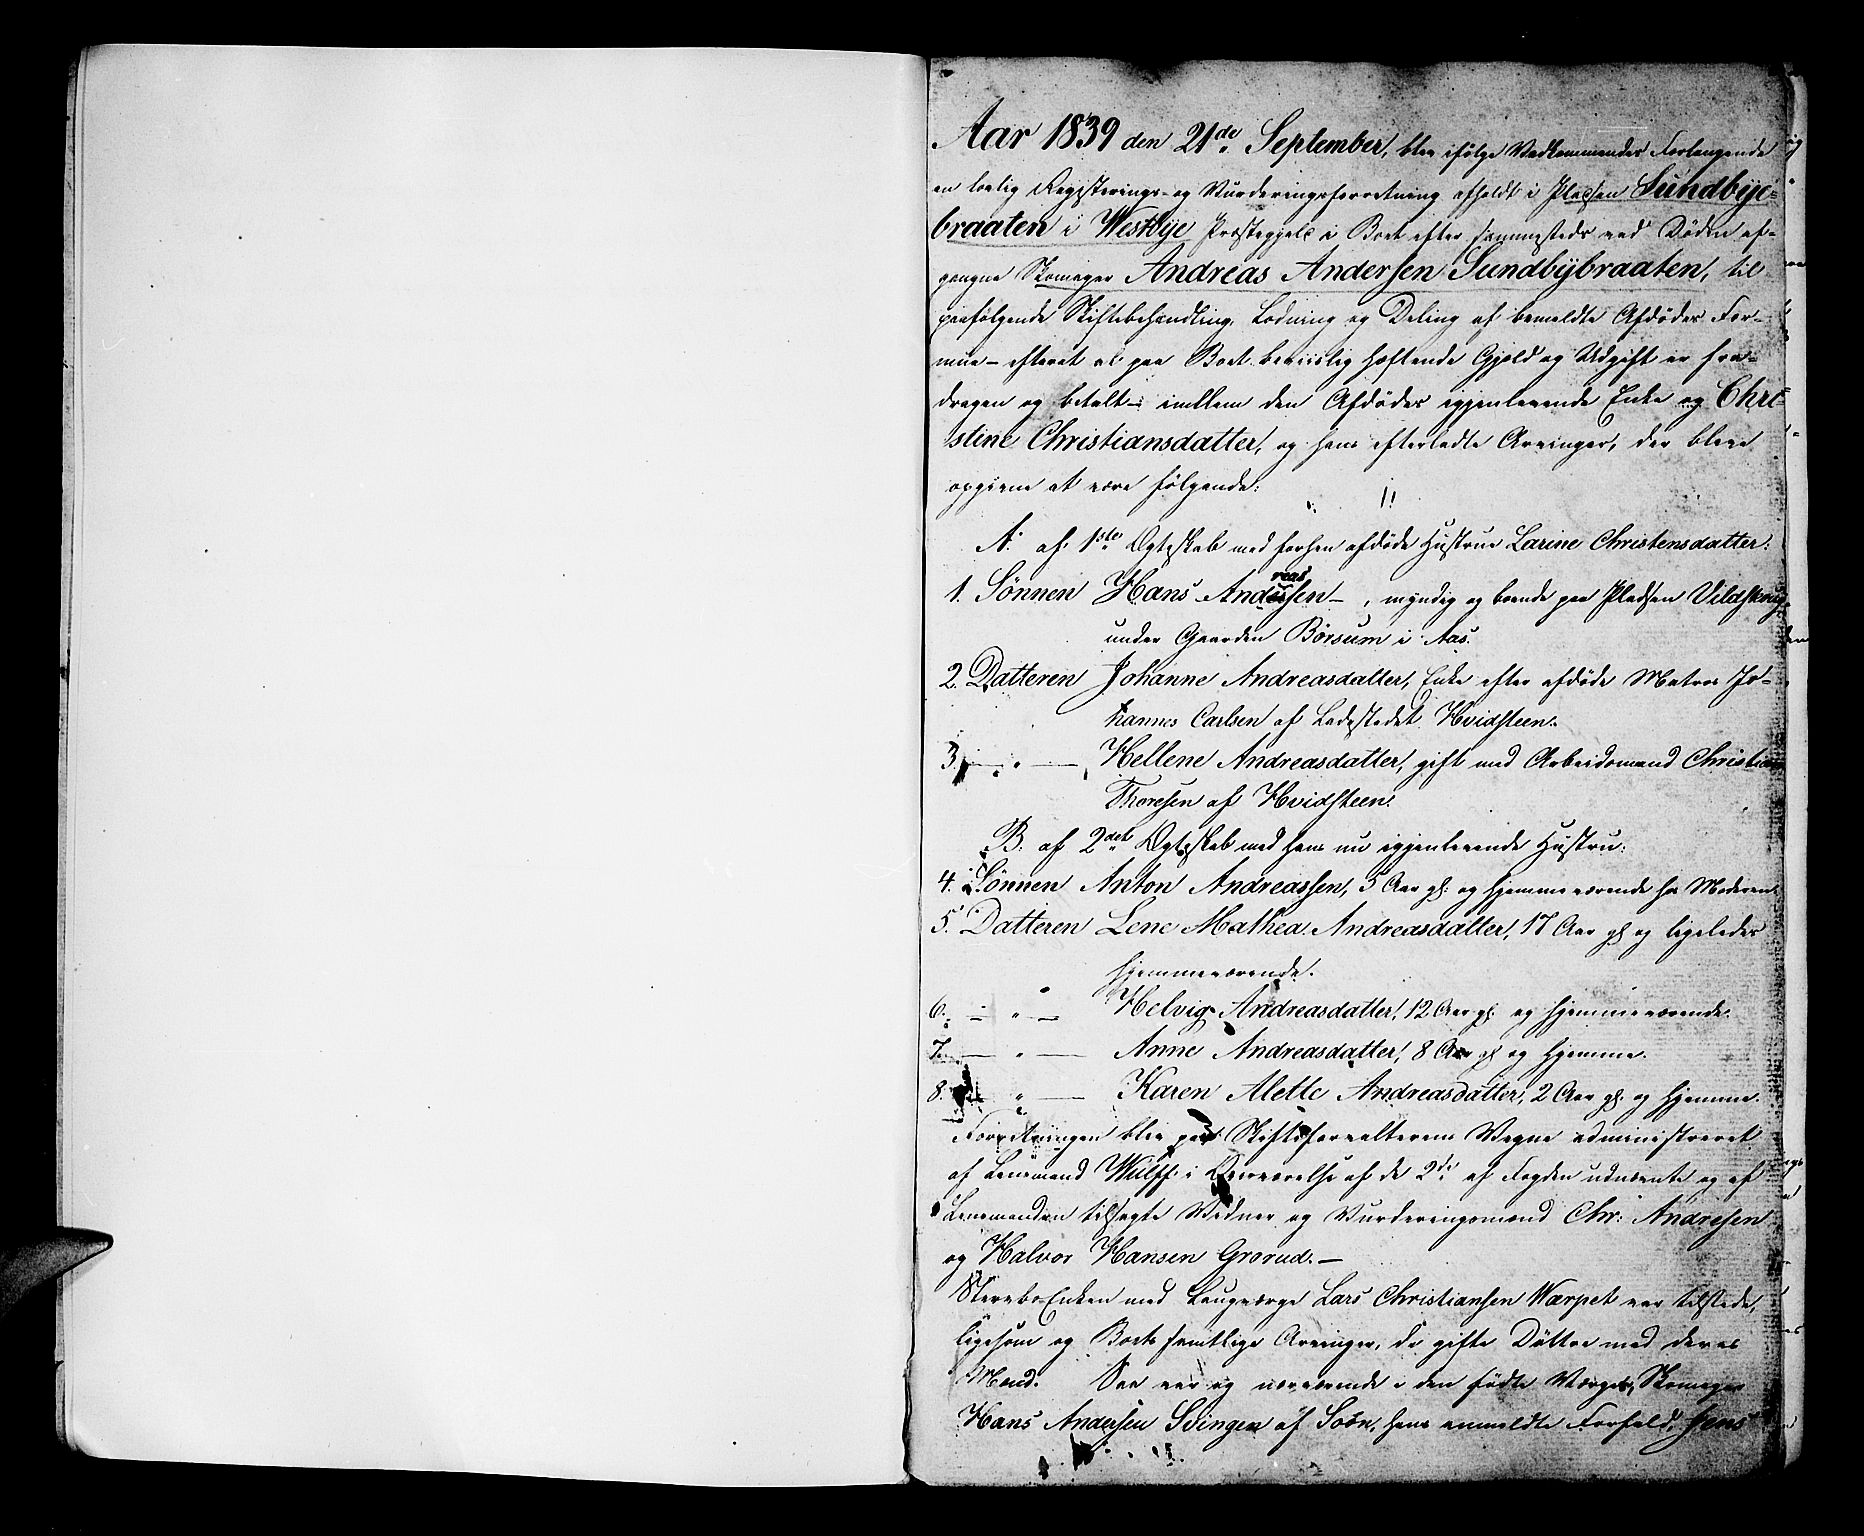 Aar 1839 den 21de September, blev ifølge Vedkommendes Forlangende
en lovlig Registerings- og Vurderingsforretning afholdt i Pladsen Sundbye-
braaten i Westbye Præstegjeld i Boet efter sammesteds ved Døden af-
gangne Skomager Andreas Andersen Sundbybraaten, til
paafølgende Skiftebehandling, Lodning og Deling af bemeldte Afdødes For-
mue – efterat al paa Boet beviislig hæftende Gjeld og Udgift er fra-
dragen og betalt – imellem den Afdødes igjenlevende Enke og Chri-
stine Christiansdatter, og hans efterladte Arvinger, der bleve
opgivne at være følgende:
A. af 1ste Ægteskab med forhen afdøde Hustrue Larine Christensdatter:
1. Sønnen Hans Andreassen –, myndig og boende paa Pladsen Vildskrig
under Gaarden Børsum i Aas.
2. Datteren Johanne Andreasdatter, Enke efter afdøde Matros Jo-
hannes Carlsen af Ladestedet Hvidsteen.
3. — " — Hellene Andreasdatter, gift med Arbeidsmand Christian
Thoresen af Hvidsteen.
B. af 2det Ægteskab med hans nu igjenlevende Hustru:
4. Sønnen Anton Andreassen, 5 Aar gl. og hjemmeværende hos Moderen.
5. Datteren Lene Mathea Andreasdatter, 17 Aar gl. og ligeledes
hjemmeværende.
6. — " — Helvig Andreasdatter, 12 Aar gl. og hjemmeværende.
7. — " — Anne Andreasdatter, 8 Aar gl. og hjemme.
8. — " — Karen Alette Andreasdatter, 2 Aar gl. og hjemme.
Forretningen blev paa Skifteforvalterens Vegne administreret
af Lensmand Wulff i Overværelse af de 2de af Fogden udnævnte og af
Lensmanden tilsagte Vidner og Vurderingsmænd Chr: Andresen
og Halvor Hansen Grorud. –
Stervbo-Enken med Laugværge Lars Christiansen Wærpet var tilstede,
ligesom og Boets samtlige Arvinger, de gifte Døttre med deres
Mænd. Saa var og nærværende den fødte Værge, Skomager
Hans Andersen Svingen af Soón, hans anmeldte Forfald, hans